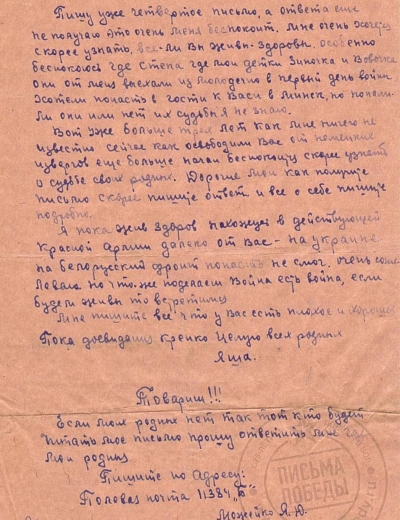 Пишу уже четвертое письмо, а ответа еще
не получаю это очень меня беспокоит. Мне очень хочется
скорее узнать, все-ли Вы живы-здоровы. Особенно
беспокоюсь где Степа где мои детки Зиночка и Вовочка
они от меня выехали из Молодечно в первый день войны
Хотели попасть в гости к Васи в Минск, но попа-
ли они или нет их судьбы я не знаю.
Вот уже больше трех лет как мне ничего не
известно сейчас как освободили Вас от немецких
извергов еще больше начал беспокоица скорее узнать
о судьбе своих родных. Дорогие мои как получите
письмо скорее пишите ответ и все о себе пишите
подробно.
Я пока жив здоров нахожуся в действующей
Красной Армии далеко от Вас - на украине
на белорусский фронт попасть не смог. очень
но что-же поделаеш война есть война, если
будем живы то встретимся
Мне пишите все что у Вас есть плохое и хорошее
Пока досвидания крепко целую всех родных
Яша.
Товарищ!!!
Если моих родных нет так тот кто будет
читать мое письмо прошу ответить мне где
мои родные
Пишите по адресу:
Полевая почта 11384 "Б"
Можейко Я. Ю.
ПИСЬМА
ПОБЕДЫ